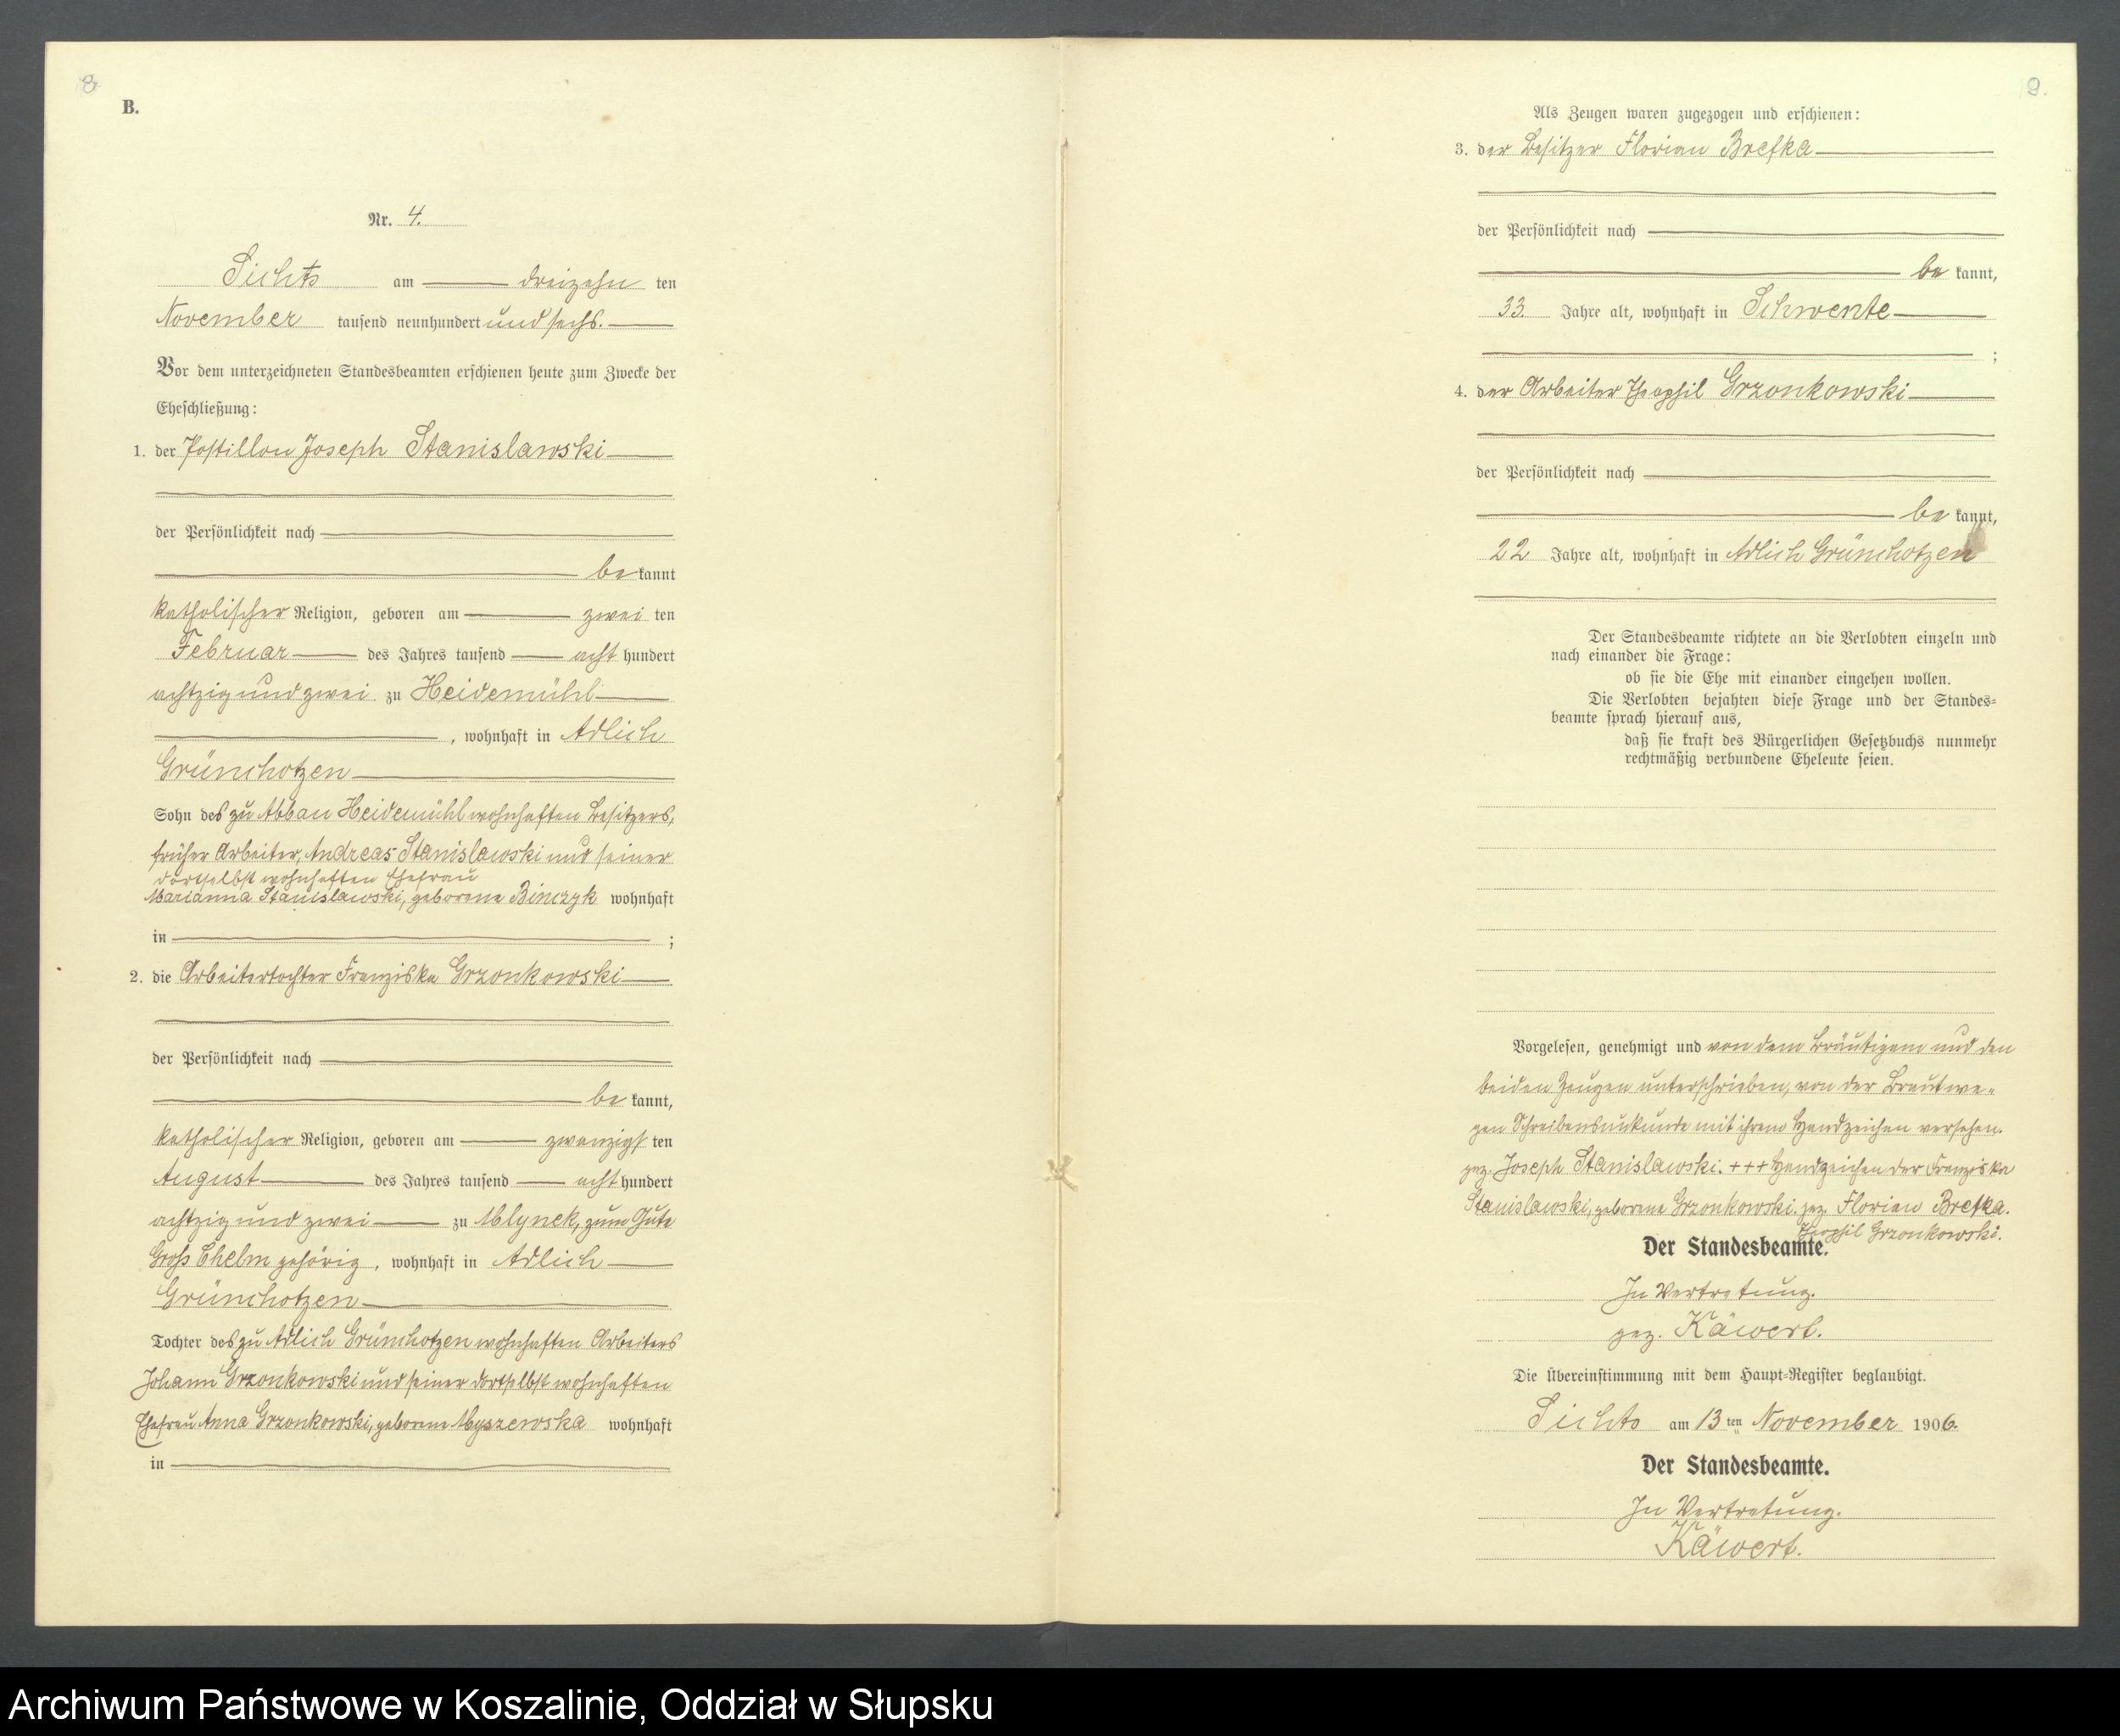 8.
B.
Nr. 4.
Sichts am dreizehn ten
November tausend neunhundert und sechs.
Vor dem unterzeichneten Standesbeamten erschienen heute zum Zwecke der
Eheschließung:
1. der Postillon Joseph Stanislawski
der Persönlichkeit nach
be kannt
katholischer Religion, geboren am zwei ten
Februar des Jahres tausend acht hundert
achtzig und zwei zu Heidemühl
, wohnhaft in Adlich
Grünchotzen
Sohn des zu Abbau Heidemühl wohnhaften Besitzers,
früher Arbeiter, Andreas Stanislawski und seiner
dortselbst wohnhaften Ehefrau
Marianna Stanislawski, geborene Binczyk wohnhaft
in ;
2. die Arbeitertochter Franziska Grzonkowski
der Persönlichkeit nach
be kannt,
katholischer Religion, geboren am zwanzigs ten
August des Jahres tausend acht hundert
achtzig und zwei zu Mlynek, zum Gute
Groß Chelm gehörig, wohnhaft in Adlich
Grünchotzen
Tochter des zu Adlich Grünchotzen wohnhaften Arbeiters
Johann Grzonkowski und seiner dortselbst wohnhaften
Ehefrau Anna Grzonkowski, geborene Myszewska wohnhaft
in
9.
Als Zeugen waren zugezogen und erschienen:
3. der Besitzer Florian Brefka
der Persönlichkeit nach
be kannt,
33. Jahre alt, wohnhaft in Schwente
;
4. der Arbeiter Theophil Grzonkowski
der Persönlichkeit nach
be kannt,
22 Jahre alt, wohnhaft in Adlich Grünchotzen
Der Standesbeamte richtete an die Verlobten einzeln und
nach einander die Frage:
ob sie die Ehe mit einander eingehen wollen.
Die Verlobten bejahten diese Frage und der Standes-
beamte sprach hierauf aus,
daß sie kraft des Bürgerlichen Gesetzbuchs nunmehr
rechtmäßig verbundene Eheleute seien.
Vorgelesen, genehmigt und von dem Bräutigam und den
beiden Zeugen unterschrieben, von der Braut we-
gen Schreibensunkunde mit ihrem Handzeichen versehen.
gez. Joseph Stanislawski. +++ Handzeichen der Franziska
Stanislawski, geborene Grzonkowski. gez. Florian Brefka.
Theophil Grzonkowski.
Der Standesbeamte.
In Vertretung.
gez. Käwert.
Die Übereinstimmung mit dem Haupt-Register beglaubigt.
Sichts am 13 ten November 1906.
Der Standesbeamte.
In Vertretung.
Käwert.
Archiwum Państwowe w Koszalinie, Oddział w Słupsku